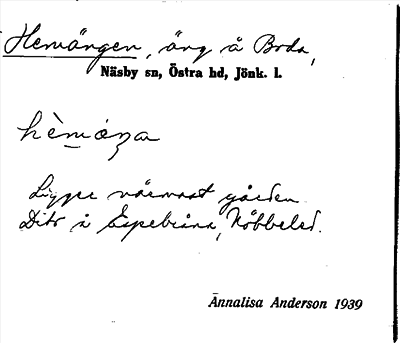 Hemängen, äng å Boda,
Näsby sn, Östra hd, Jönk. l.
hèmáŋa
Ligger närmast gården.
Dito å Espebråna, Nöbbeled.
Annalisa Anderson 1939